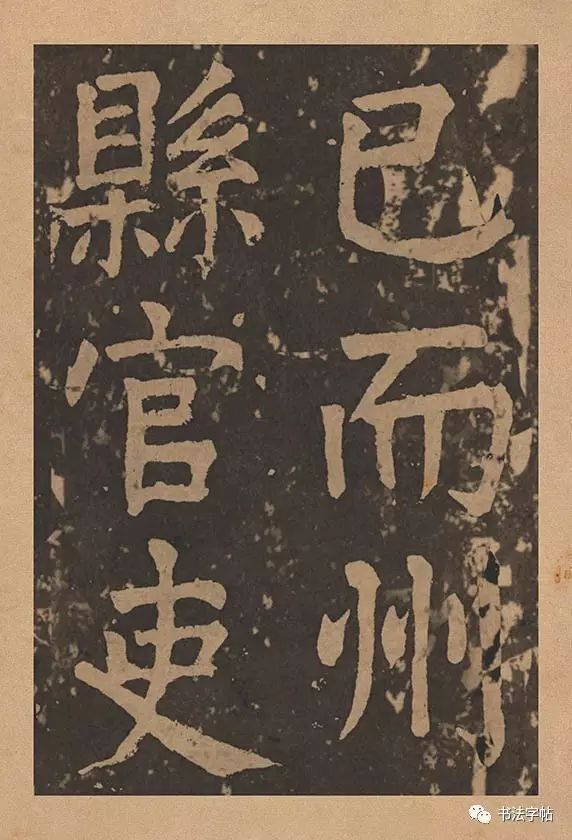 已而州
縣官吏
书法字帖